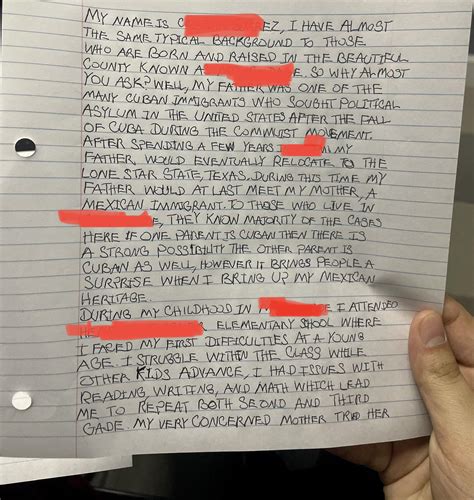 MY NAME IS C EZ, I HAVE ALMOST
THE SAME TYPICAL BACKGROUND TO THOSE
WHO ARE BORN AND RAISED IN THE BEAUTIFUL
COUNTY KNOWN A E. SO WHY ALMOST
YOU ASK? WELL, MY FATHER WAS ONE OF THE
MANY CUBAN IMMIGRANTS WHO SOUGHT POLITICAL
ASYLUM IN THE UNITED STATES AFTER THE FALL
OF CUBA DURING THE COMMUIST MOVEMENT.
AFTER SPENDING A FEW YEARS MY
FATHER, WOULD EVENTUALLY RELOCATE TO THE
LONE STAR STATE, TEXAS. DURING THIS TIME MY
FATHER WOULD AT LAST MEET MY MOTHER, A
MEXICAN IMMIGRANT. TO THOSE WHO LIVE IN
E, THEY KNOW MAJORITY OF THE CASES
HERE IF ONE PARENT IS CUBAN THEN THERE IS
A STRONG POSSIBILITY THE OTHER PARENT IS
CUBAN AS WELL, HOWEVER IT BRINGS PEOPLE A
SURPRISE WHEN I BRING UP MY MEXICAN
HERITAGE.
DURING MY CHILDHOOD IN I ATTENDED
HE ELEMENTARY SHOOL WHERE
I FARED MY FIRST DIFFICULTIES AT A YOUNG
AGE. I STRUGGLE WITHIN THE CLASS WHILE
OTHER KIDS ADVANCE, I HAD ISSUES WITH
READING WRITING, AND MATH WHICH LEAD
ME TO REPEAT BOTH SEOND AND THIRD
GADE. MY VERY CONCERNED MOTHER TRIED HER